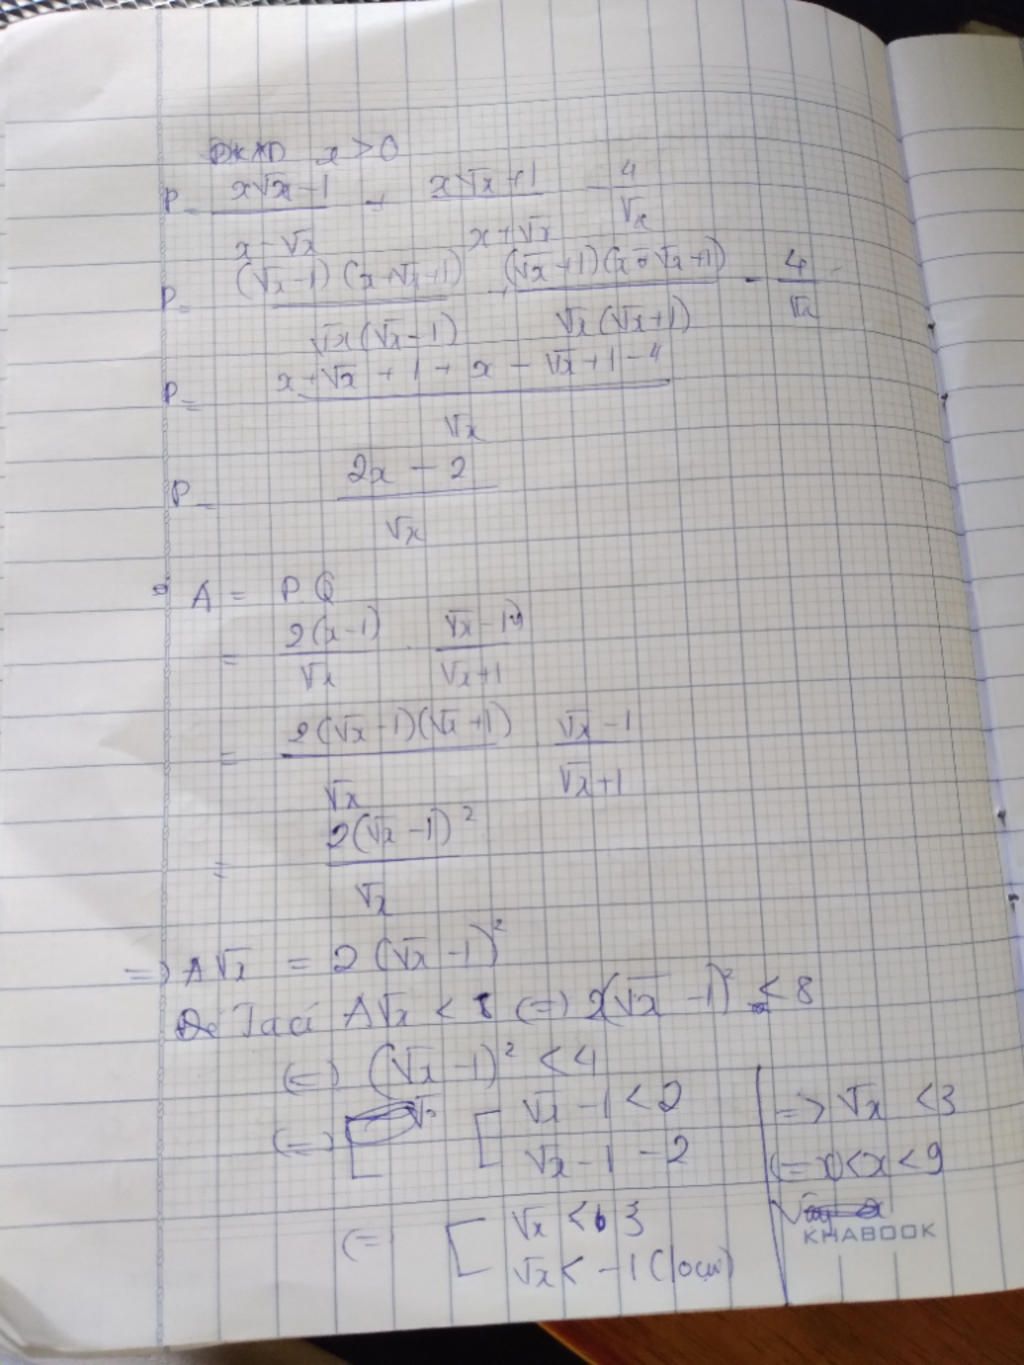 ĐKXĐ x > 0
P = (x√x - 1)/(x - √x) + (x√x + 1)/(x + √x) - 4/√x
P = (√x - 1)(x + √x + 1)/√x(√x - 1) + (√x + 1)(x - √x + 1)/√x(√x + 1) - 4/√x
P = (x + √x + 1 + x - √x + 1 - 4)/√x
P = (2x - 2)/√x
A = PQ
= 2(x - 1)/√x . (√x - 1)/(√x + 1)
= 2(√x - 1)(√x + 1)/√x (√x - 1)/(√x + 1)
= 2(√x - 1)²/√x
=> A√x = 2(√x - 1)²
A√x < 8 (=) 2(√x - 1)² < 8
(=) (√x - 1)² < 4
(=) [ √x - 1 < 2
√x - 1 - 2
(=) [ √x < 3
√x < -1 (loại)
=> √x < 3
(=) 0 < x < 9
KHABOOK